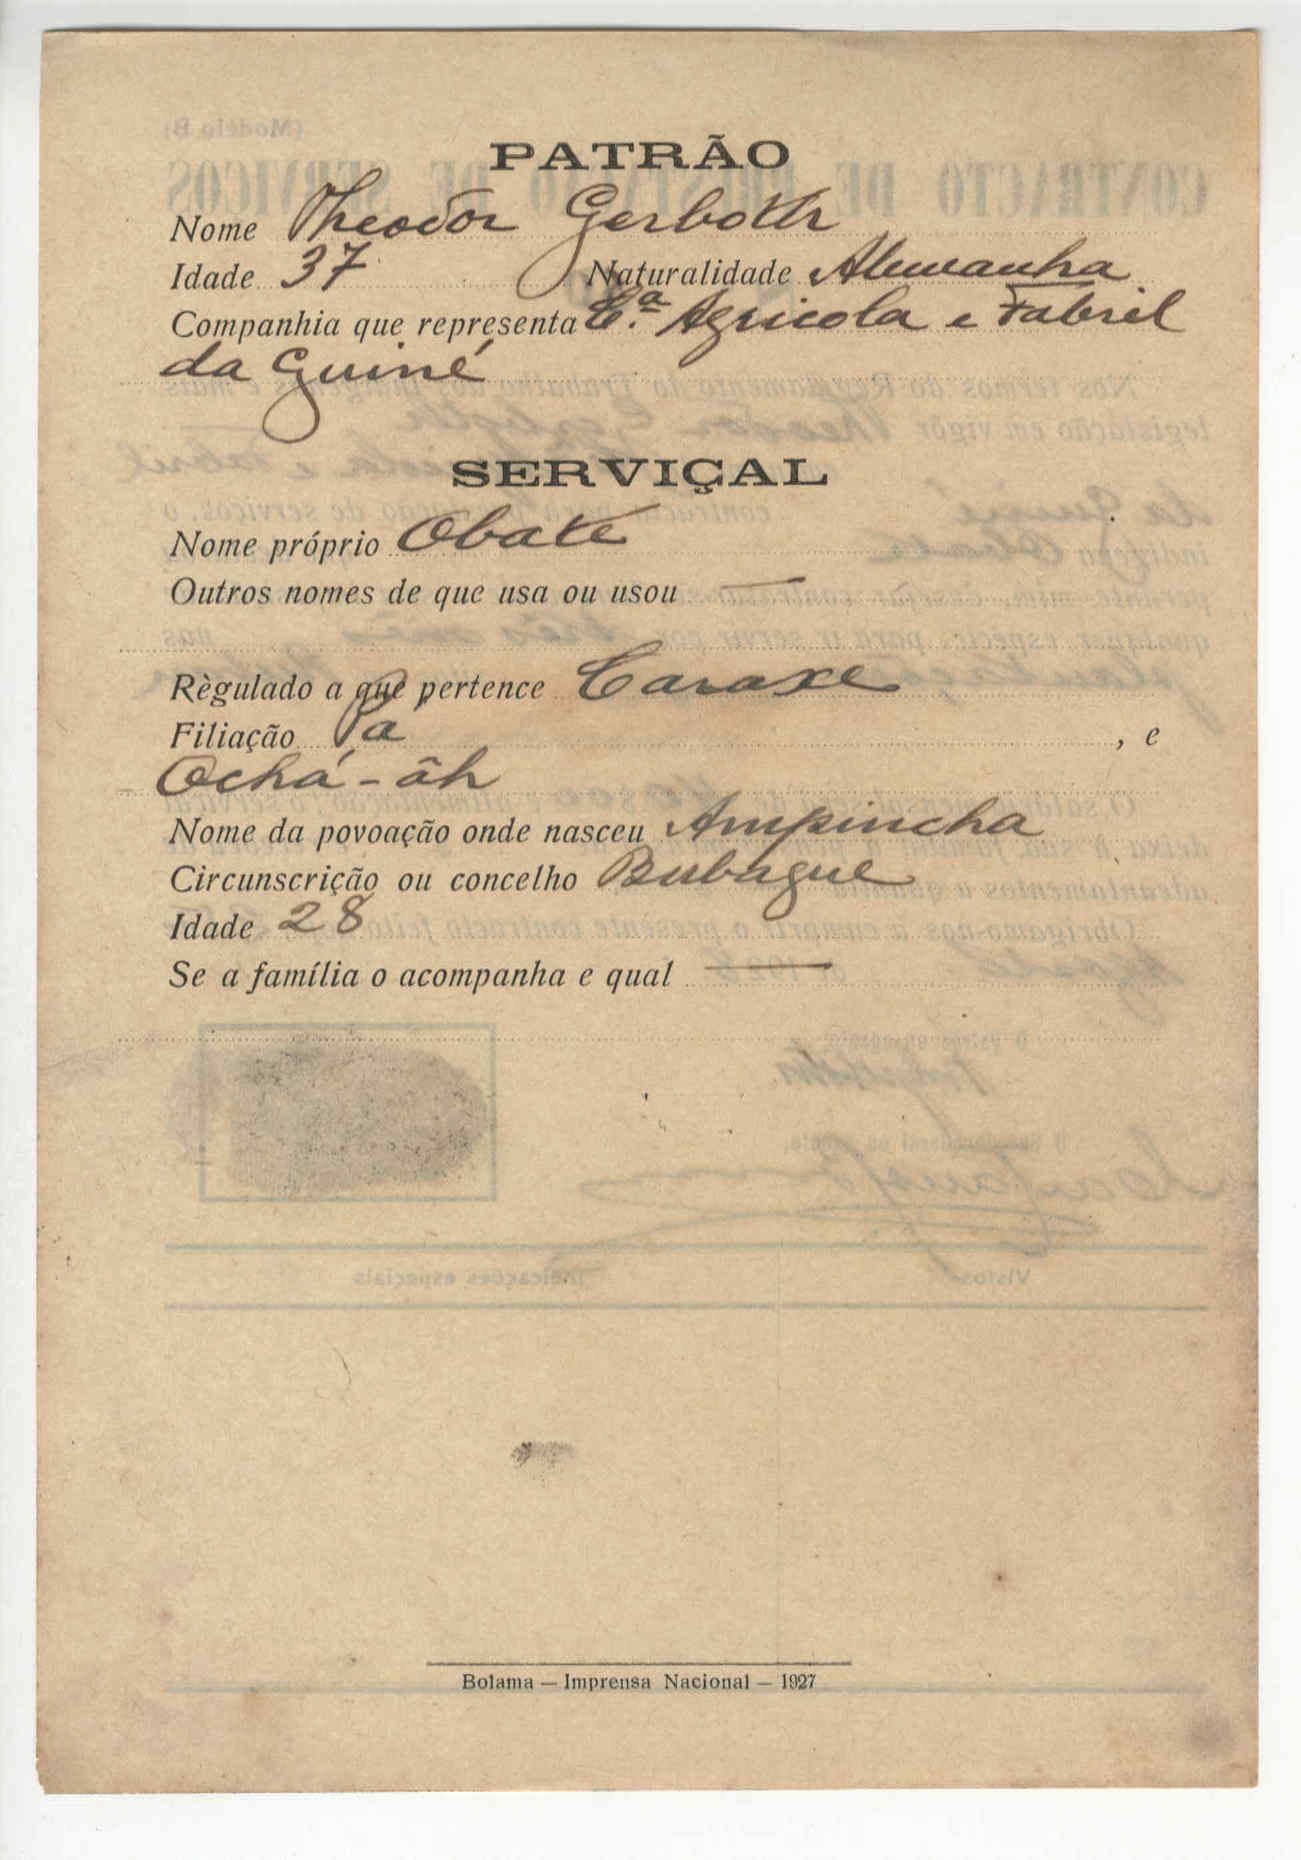 PATRÃO
Nome Theodor Gerboth
Idade 37 Naturalidade Alemanha
Companhia que representa C.ª Agricola e Fabril
da Guiné
SERVIÇAL
Nome próprio Obate
Outros nomes de que usa ou usou —
Règulado a que pertence Caraxe
Filiação Pá, e
Ochá-âh
Nome da povoação onde nasceu Ampincha
Circunscrição ou concelho Bubague
Idade 28
Se a família o acompanha e qual —
Bolama — Imprensa Nacional — 1927